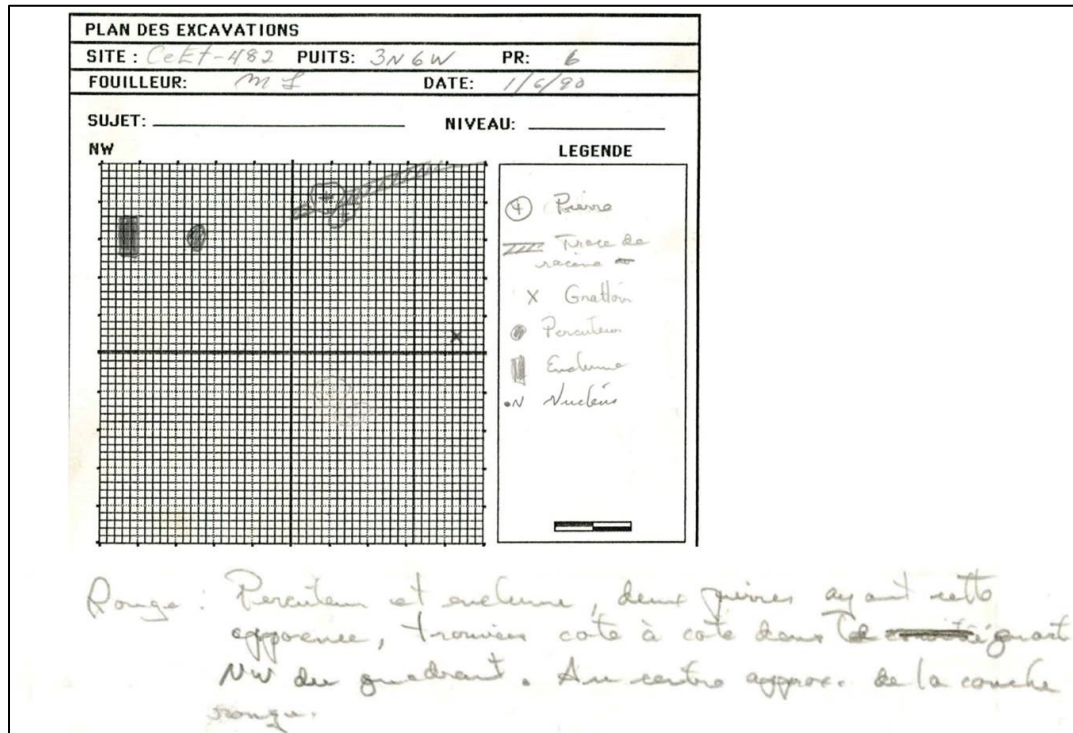 PLAN DES EXCAVATIONS
SITE : CeEt-482 PUITS: 3N6W PR: 6
FOUILLEUR: M L DATE: 1/6/90
SUJET: NIVEAU:
NW LEGENDE
Pierre
Trace de
racine
X Grattoir
Percuteur
Enclume
•N Nucléus
Rouge : Percuteur et enclume, deux pierres ayant cette
apparence, trouvées cote à cote dans le quart
NW du quadrant. Au centre approx. de la couche
rouge.